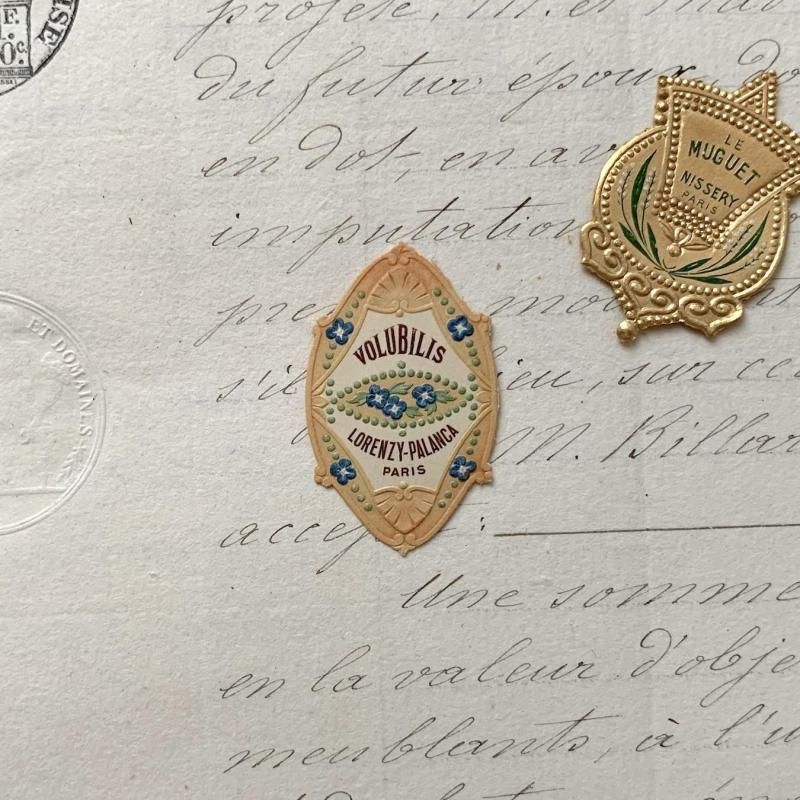 F.
1.
0c.
ISE
projeté, M. et Mad
du futur époux, do
en dot, en av
imputation
LE
MUGUET
NISSERY
PARIS
s'il lieu, sur ces
ET DOMAINES
VOLUBILIS
LORENZY-PALANCA
PARIS
M. Billar
accep
Une somme
en la valeur d'obje
meublants, à l'u